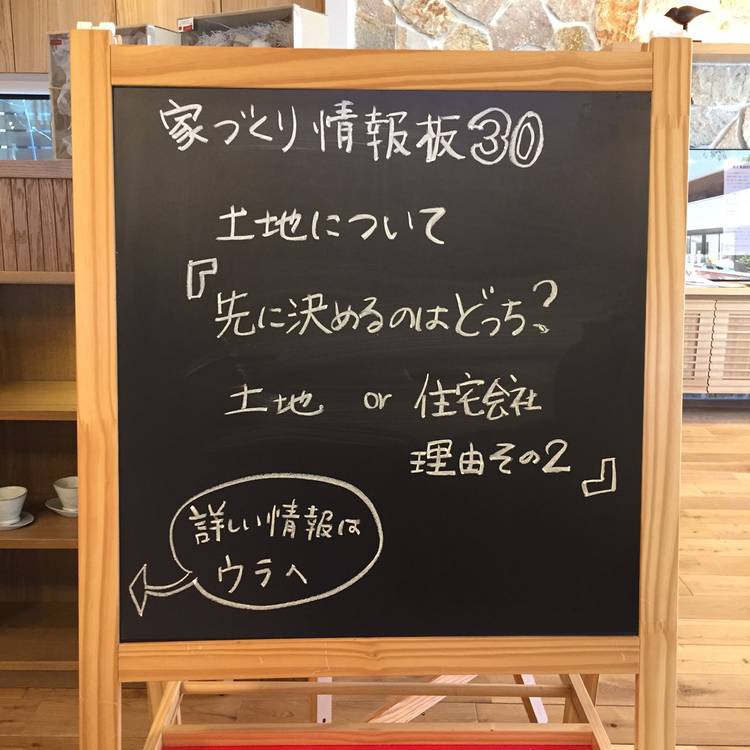 家づくり情報板30
土地について
『先に決めるのはどっち?
土地 or 住宅会社
理由その2』
詳しい情報は
ウラへ